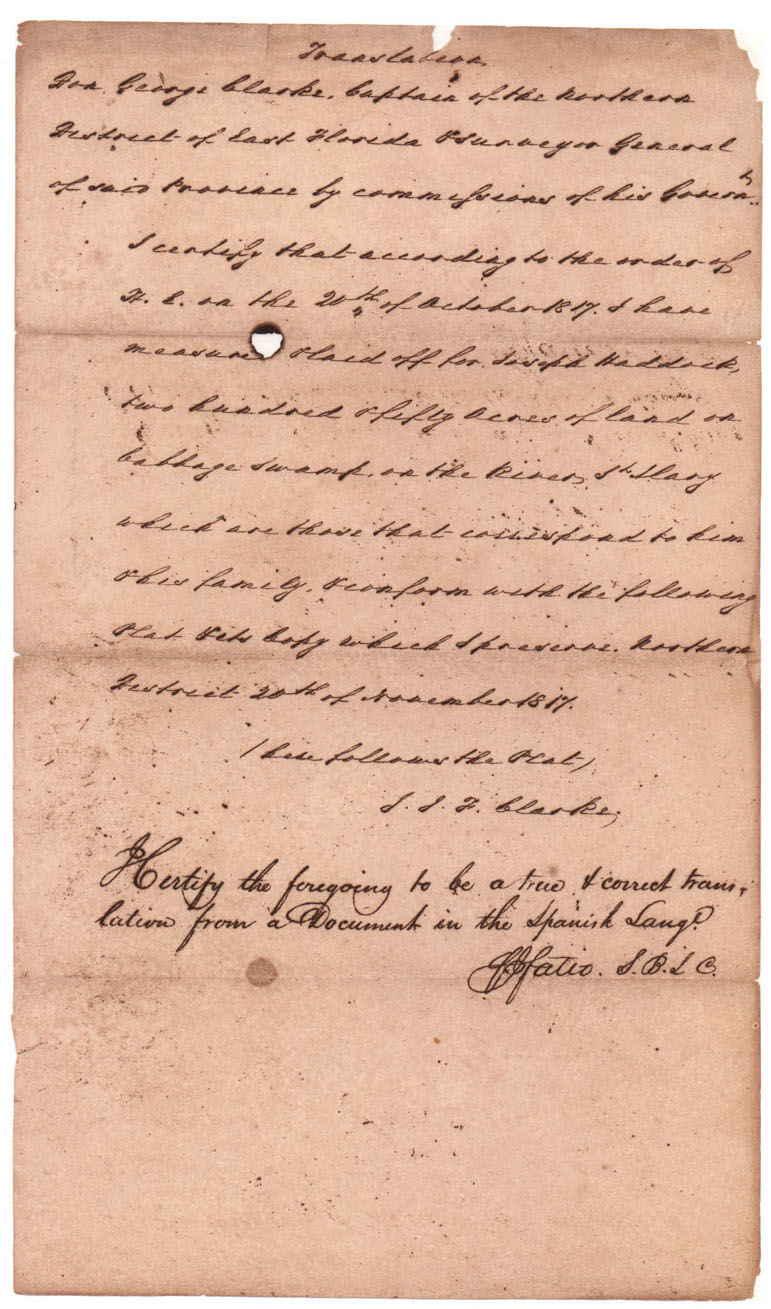 Translation.
Don George Clarke, Captain of the Northern
District of East Florida & Surveyor General
of said Province by commissions of his Governt..
I certify that according to the order of
H. E. on the 20th of October 1817. I have
measured & laid off for Joseph Haddock,
two hundred & fifty Acres of land on
Cabbage Swamp, on the River, St Mary
which are those that correspond to him
& his family, & conform with the following
Plat & its Copy which I preserve. Northern
District 20th of November 1817.
(here follows the Plat)
Clarke,
I Certify the foregoing to be a true & correct trans-
lation from a Document in the Spanish Lange.
Fatio. S. B. L C.